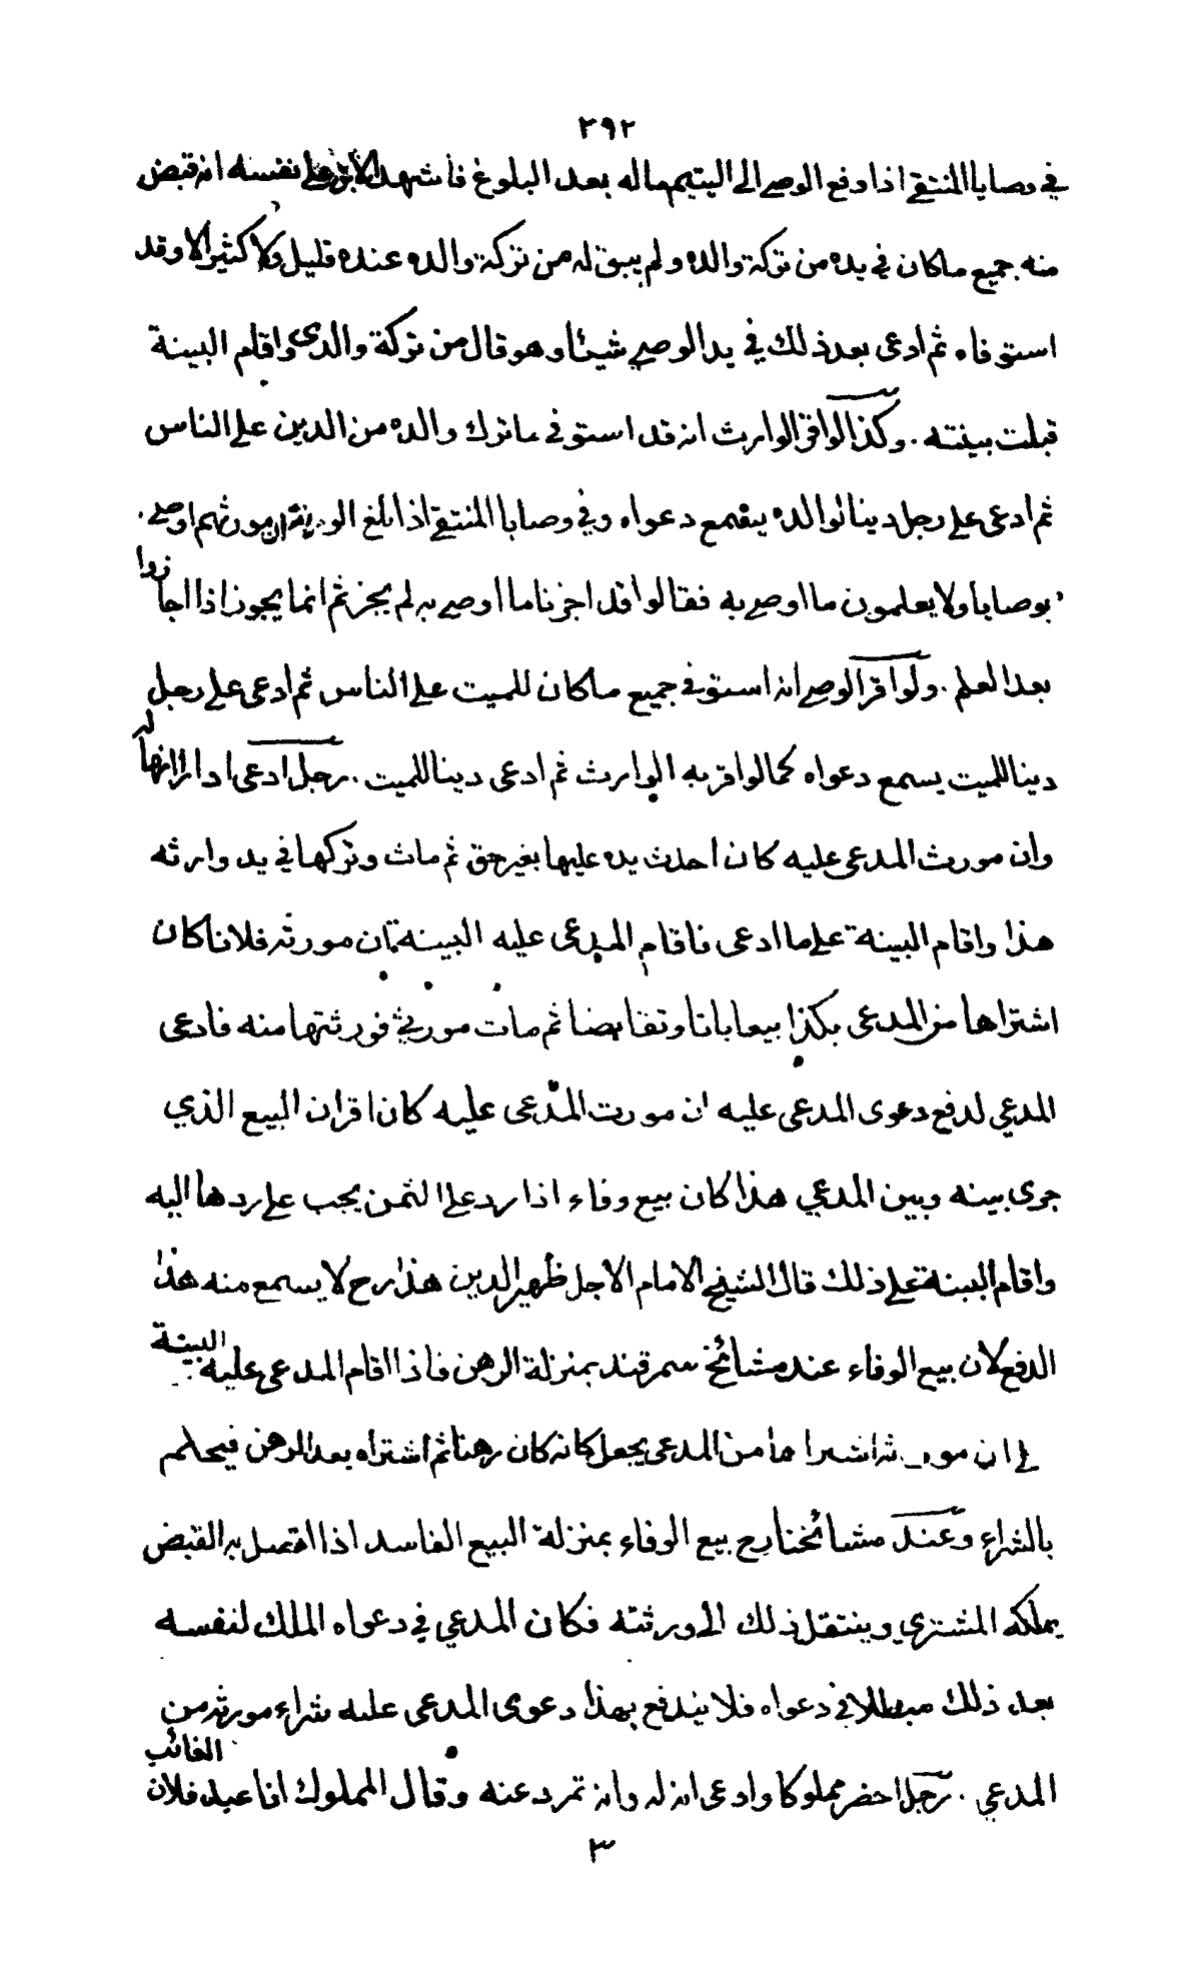 ٢٩٢
في وصايا المنتقى اذا دفع الوصي الى اليتيم ماله بعد البلوغ فاشهد الابن على نفسه انه قبض
منه جميع ماكان في يده من تركة والده ولم يبق له من تركة والده عنده قليل ولا كثير الا وقد
استوفاه ثم ادعى بعد ذلك في يد الوصي شيئا وهو قال من تركة والدي واقام البينة
قبلت بينته . وكذا لو اقر الوارث انه قد استوفى ما ترك والده من الدين على الناس
ثم ادعى على رجل دينا لوالده يسمع دعواه وفي وصايا المنتقى اذا بلغ الورثة ان مورثهم اوصى
بوصايا ولا يعلمون ما اوصى به فقالوا قد اجزنا ما اوصى به لم يجز ثم انما يجوز اذا اجازوا
بعد العلم . ولو اقر الوصي انه استوفى جميع ماكان للميت على الناس ثم ادعى على رجل
دينا للميت يسمع دعواه كما لو اقر به الوارث ثم ادعى دينا للميت . رجل ادعى دارا انها له
وان مورث المدعى عليه كان احدث يده عليها بغير حق ثم مات وتركها في يد وارثه
هذا واقام البينة على ما ادعى فاقام المدعى عليه البينة بان مورثه فلانا كان
اشتراها من المدعى بكذا بيعا باتا وتقابضا ثم مات مورثي فورثتها منه فادعى
المدعي لدفع دعوى المدعى عليه ان مورث المدعى عليه كان اقر ان البيع الذي
جرى بينه وبين المدعي هذا كان بيع وفاء اذا رد على الثمن يجب على ردها اليه
واقام البينة على ذلك قال الشيخ الامام الاجل ظهير الدين هذا رح لا يسمع منه هذا
الدفع لان بيع الوفاء عند مشائخ سمرقند بمنزلة الرهن فاذا اقام المدعى عليه البينة
ان مورثه اشتراها من المدعى يجعل كانه كان رهنا ثم اشتراه بعد الرهن فيحكم
بالشراء وعند مشائخنا رح بيع الوفاء بمنزلة البيع الفاسد اذا اتصل به القبض
يملكه المشتري وينتقل ذلك الى ورثته فكان المدعي في دعواه الملك لنفسه
بعد ذلك مبطلا في دعواه فلا يندفع بهذا دعوى المدعى عليه شراء مورثه من
المدعي . رجل احضر مملوكا وادعى انه له وانه تمرد عنه وقال المملوك انا عبد فلان الغائب
٣